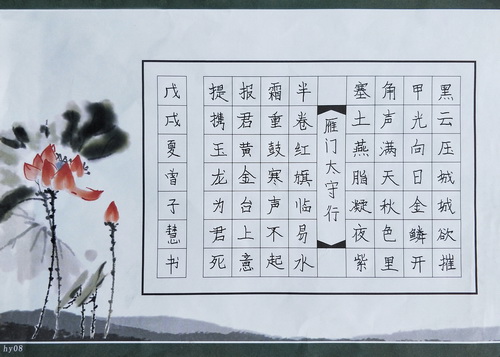 黑云压城城欲摧
甲光向日金鳞开
角声满天秋色里
塞土燕脂凝夜紫
雁门太守行
半卷红旗临易水
霜重鼓寒声不起
报君黄金台上意
提携玉龙为君死
戊戌夏曾子慧书
hy08